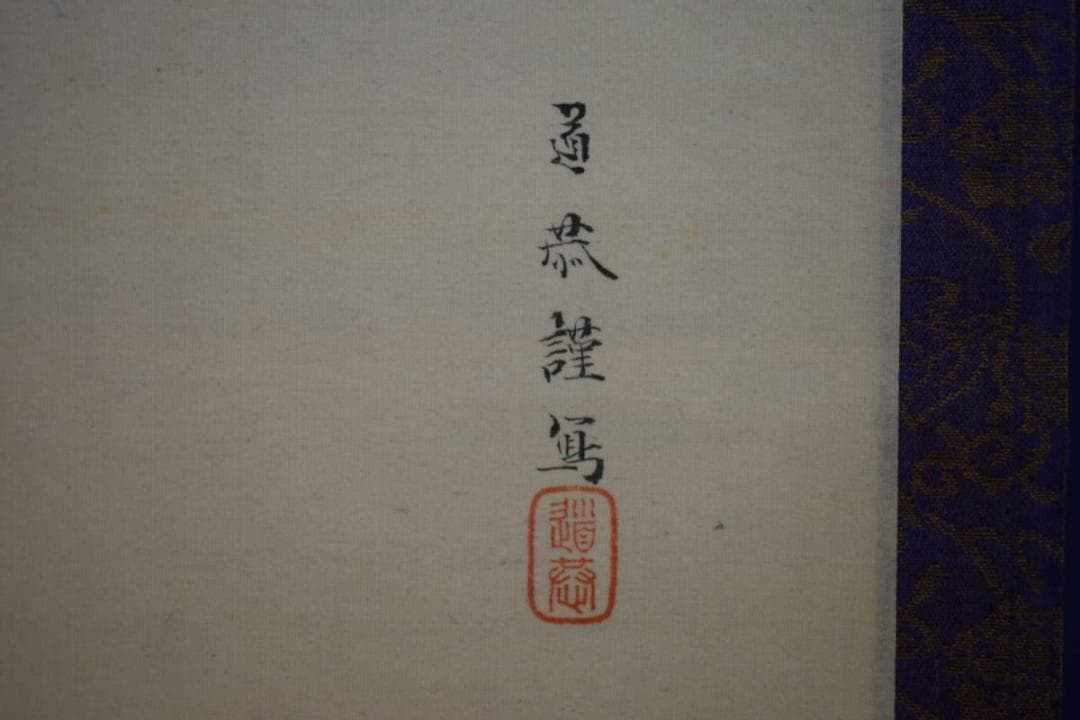 道恭謹寫
道恭